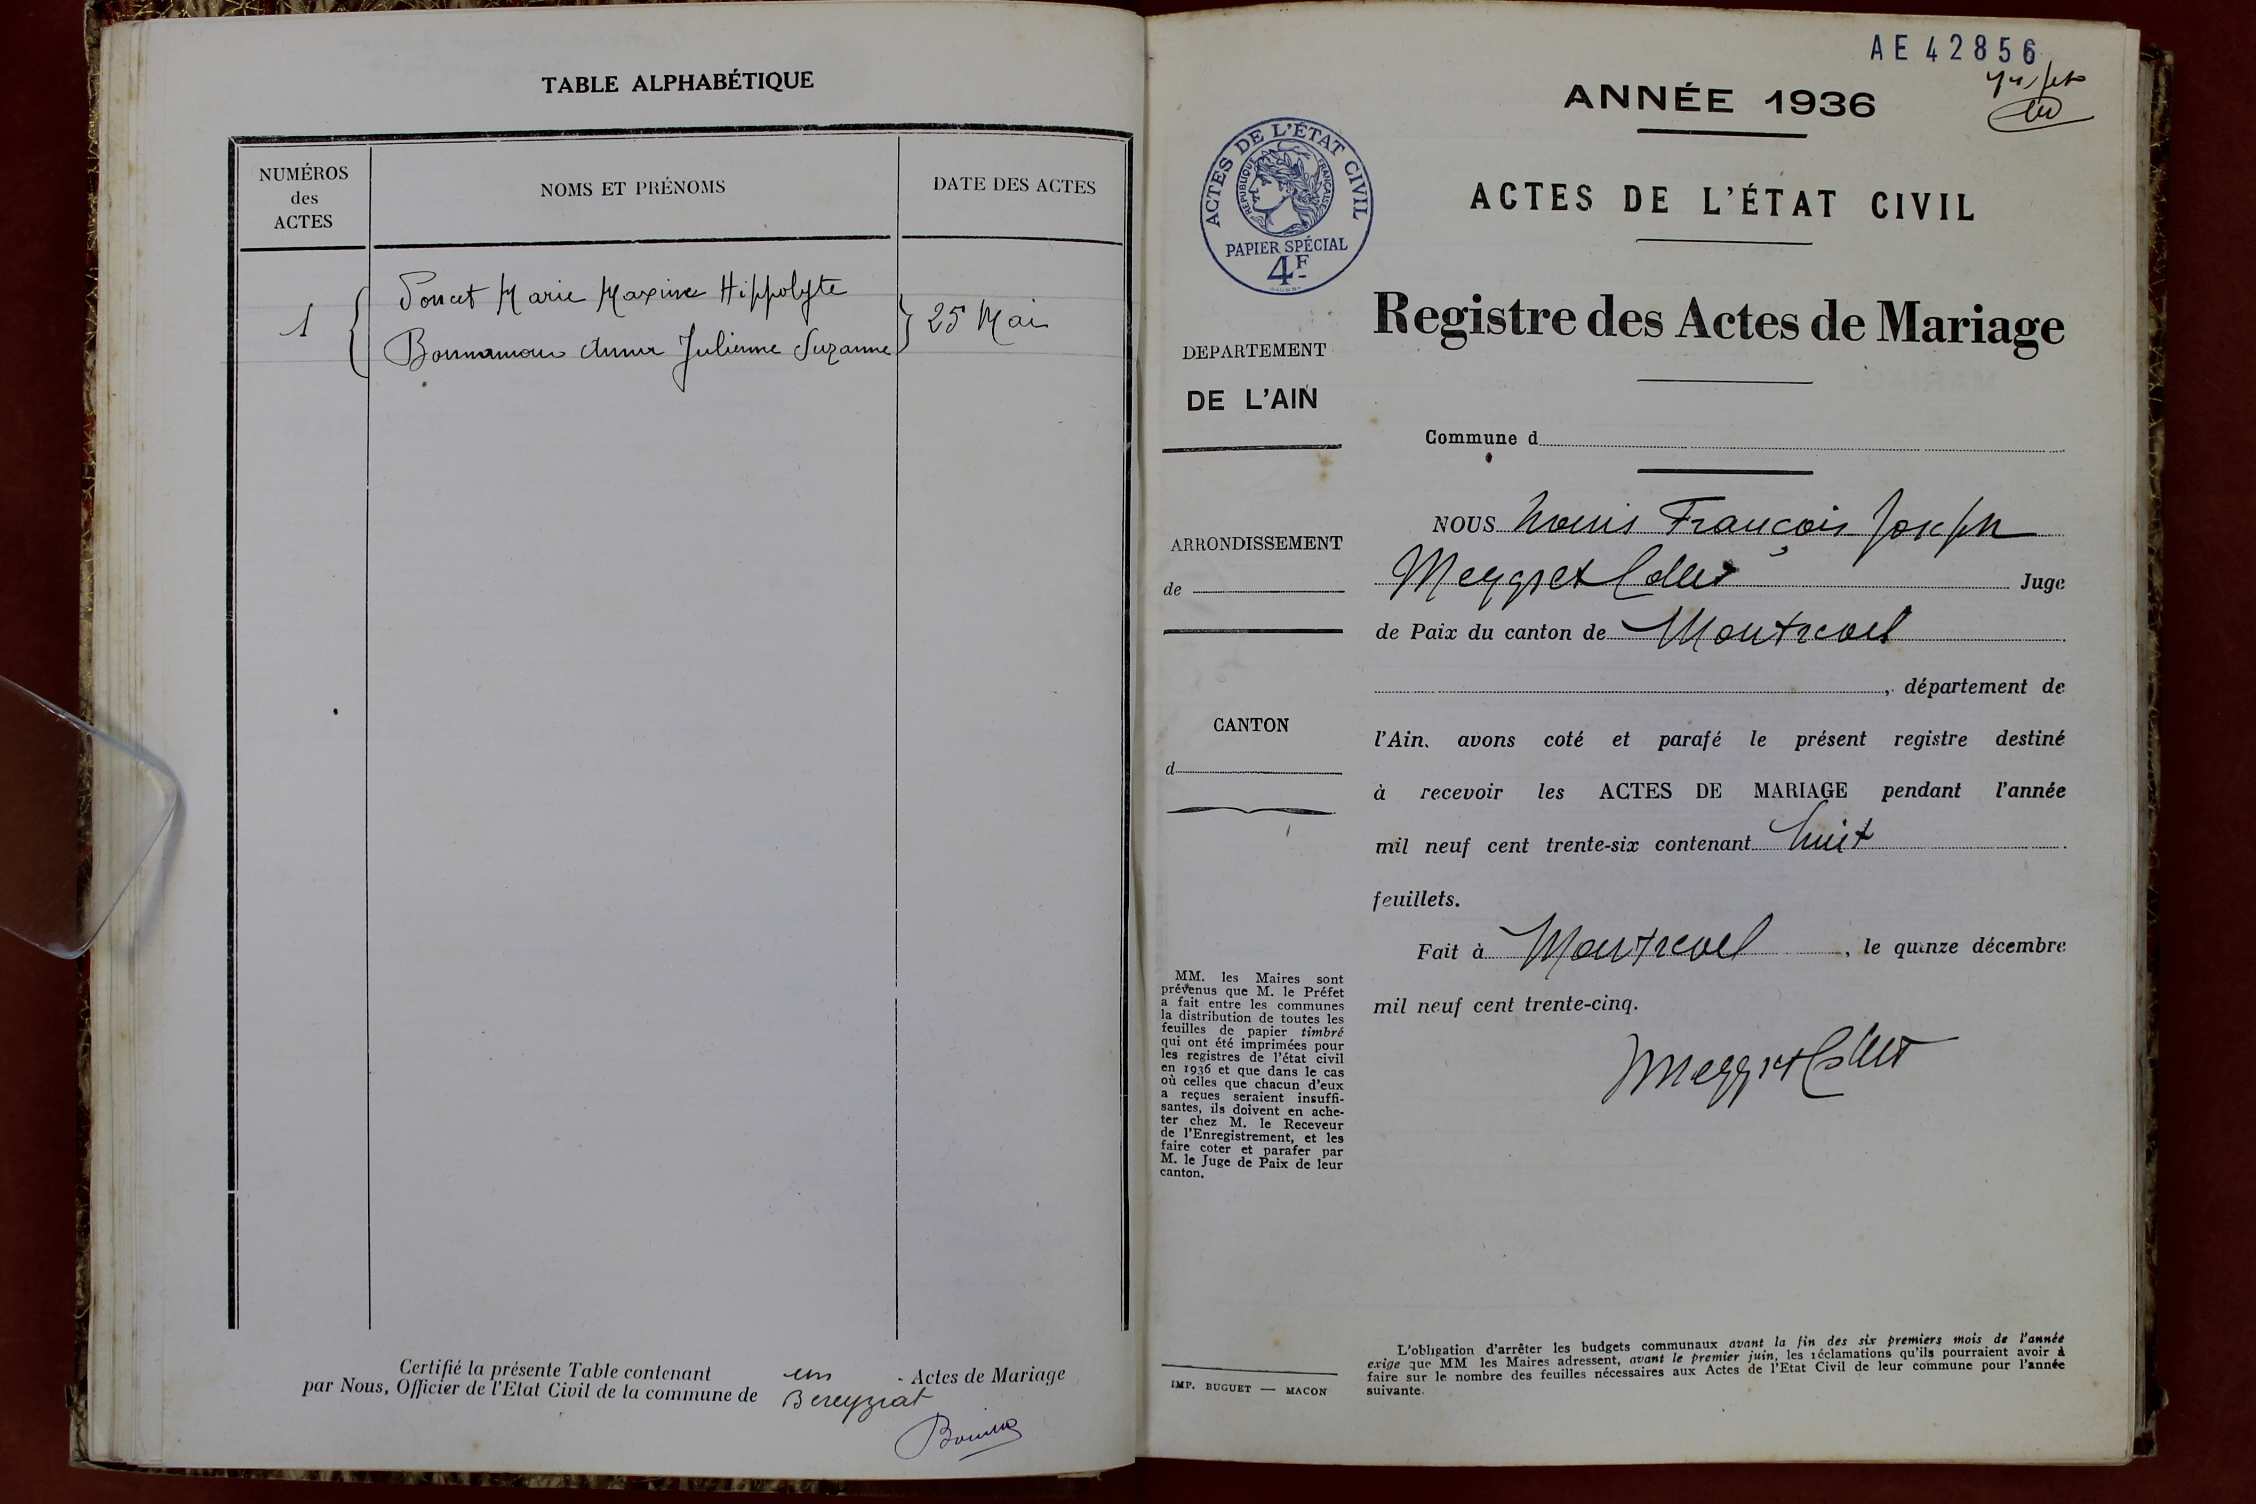 TABLE ALPHABÉTIQUE
NUMÉROS
des
ACTES
NOMS ET PRÉNOMS
DATE DES ACTES
1
Poncet Marie Maxime Hippolyte
Bonnamour Anna Julienne Suzanne
25 Mai
Certifié la présente Table contenant un Actes de Mariage
par Nous, Officier de l'Etat Civil de la commune de Bereyziat
AE 42856
ANNÉE 1936
ACTES DE L'ÉTAT CIVIL
RÉPUBLIQUE FRANÇAISE
PAPIER SPÉCIAL
4F
ACTES DE L'ÉTAT CIVIL
Registre des Actes de Mariage
DEPARTEMENT
DE L'AIN
ARRONDISSEMENT
de
CANTON
d
MM. les Maires sont
prévenus que M. le Préfet
a fait entre les communes
la distribution de toutes les
feuilles de papier timbré
qui ont été imprimées pour
les registres de l'état civil
en 1936 et que dans le cas
où celles que chacun d'eux
a reçues seraient insuffi-
santes, ils doivent en ache-
ter chez M. le Receveur
de l'Enregistrement, et les
faire coter et parafer par
M. le Juge de Paix de leur
canton.
IMP. BUGUET — MACON
Commune d
NOUS Louis François Joseph
Meygret Collet Juge
de Paix du canton de Montrevel
, département de
l'Ain, avons coté et parafé le présent registre destiné
à recevoir les ACTES DE MARIAGE pendant l'année
mil neuf cent trente-six contenant huit
feuillets.
Fait à Montrevel, le quinze décembre
mil neuf cent trente-cinq.
Meygret Collet
L'obligation d'arrêter les budgets communaux avant la fin des six premiers mois de l'année
exige que MM les Maires adressent, avant le premier juin, les réclamations qu'ils pourraient avoir à
faire sur le nombre des feuilles nécessaires aux Actes de l'Etat Civil de leur commune pour l'année
suivante.